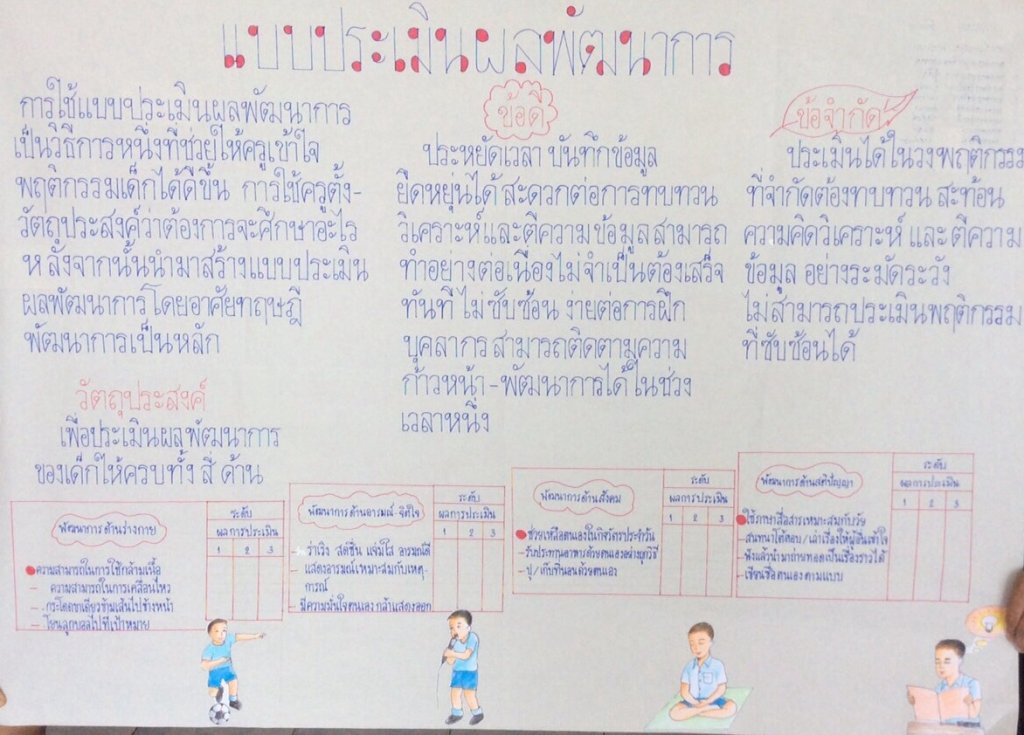 แบบประเมินผลพัฒนาการ
การใช้แบบประเมินผลพัฒนาการ
เป็นวิธีการหนึ่งที่ช่วยให้ครูเข้าใจ
พฤติกรรมเด็กได้ดีขึ้น การใช้ครูตั้ง-
วัตถุประสงค์ว่าต้องการจะศึกษาอะไร
หลังจากนั้นนำมาสร้างแบบประเมิน
ผลพัฒนาการโดยอาศัยทฤษฎี
พัฒนาการเป็นหลัก
วัตถุประสงค์
เพื่อประเมินผลพัฒนาการ
ของเด็กให้ครบทั้ง สี่ ด้าน
ข้อดี
ประหยัดเวลา บันทึกข้อมูล
ยืดหยุ่นได้ สะดวกต่อการทบทวน
วิเคราะห์และตีความข้อมูลสามารถ
ทำอย่างต่อเนื่องไม่จำเป็นต้องเสร็จ
ทันที ไม่ซับซ้อน ง่ายต่อการฝึก
บุคลากร สามารถติดตามความ
ก้าวหน้า-พัฒนาการได้ในช่วง
เวลาหนึ่ง
ข้อจำกัด
ประเมินได้ในวงพฤติกรรม
ที่จำกัดต้องทบทวน สะท้อน
ความคิดวิเคราะห์ และตีความ
ข้อมูล อย่างระมัดระวัง
ไม่สามารถประเมินพฤติกรรม
ที่ซับซ้อนได้
พัฒนาการด้านร่างกาย
ระดับ
ผลการประเมิน
1 2 3
ความสามารถในการใช้กล้ามเนื้อ
- ความสามารถในการเคลื่อนไหว
- กระโดดขาเดียวข้ามเส้นไปข้างหน้า
- โยนลูกบอลไปที่เป้าหมาย
พัฒนาการด้านอารมณ์-จิตใจ
ระดับ
ผลการประเมิน
1 2 3
- ร่าเริง สดชื่น แจ่มใส อารมณ์ดี
- แสดงอารมณ์เหมาะสมกับเหตุ-
การณ์
- มีความมั่นใจตนเอง กล้าแสดงออก
พัฒนาการด้านสังคม
ระดับ
ผลการประเมิน
1 2 3
ช่วยเหลือตนเองในกิจวัตรประจำวัน
- รับประทานอาหารด้วยตนเองอย่างถูกวิธี
- ปู/เก็บที่นอนด้วยตนเอง
พัฒนาการด้านสติปัญญา
ระดับ
ผลการประเมิน
1 2 3
ใช้ภาษาสื่อสารเหมาะสมกับวัย
- สนทนาโต้ตอบ/เล่าเรื่องให้ผู้อื่นเข้าใจ
- ฟังแล้วนำมาถ่ายทอดเป็นเรื่องราวได้
- เขียนชื่อตนเองตามแบบ